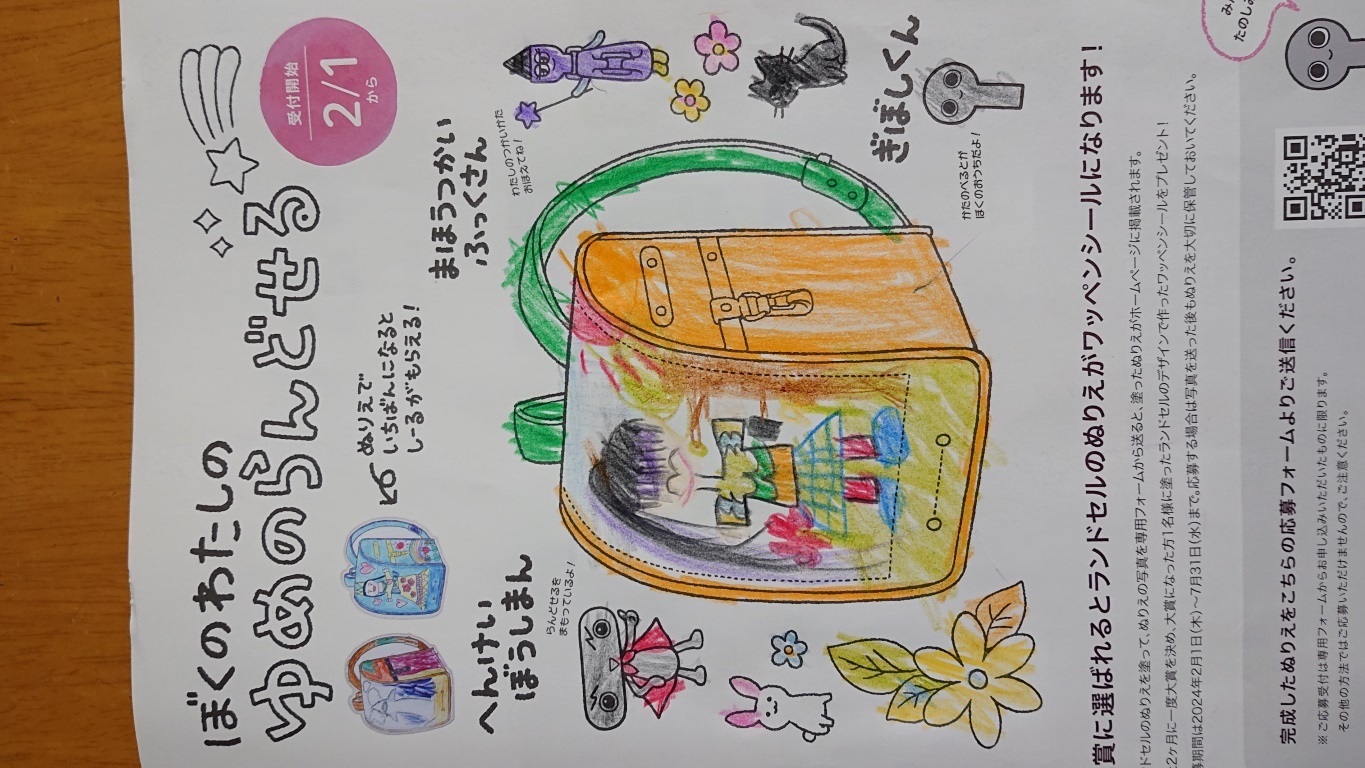 ぼくのわたしの
ゆめのらんどせる
受付開始
2/1
から
ぬりえで
いちばんになると
しーるがもらえる!
へんけい
ぼうしまん
らんどせるを
まもっているよ!
まほうつかい
ふっくさん
わたしのつかいかた
おぼえてね!
ぎぼしくん
かたのべるとが
ぼくのおうちだよ!
賞に選ばれるとランドセルのぬりえがワッペンシールになります!
ドセルのぬりえを塗って、ぬりえの写真を専用フォームから送ると、塗ったぬりえがホームページに掲載されます。
2ヶ月に一度大賞を決め、大賞になった方1名様に塗ったランドセルのデザインで作ったワッペンシールをプレゼント!
期間は2024年2月1日(木)〜7月31日(水)まで。応募する場合は写真を送った後もぬりえを大切に保管しておいてください。
たのしみ
完成したぬりえをこちらの応募フォームよりご送信ください。
※ご応募受付は専用フォームからお申し込みいただいたものに限ります。
その他の方法ではご応募いただけませんので、ご注意ください。